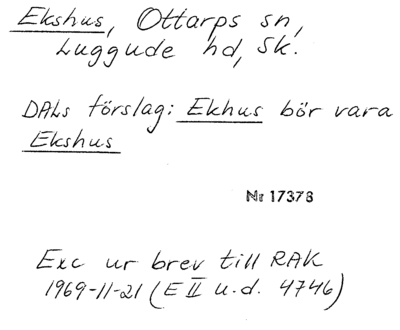 Ekshus, Ottarps sn,
Luggude hd, Sk.
DALs förslag: Ekhus bör vara
Ekshus
Nr 17378
Exc ur brev till RAK
1969-11-21 (E II u.d. 4746)